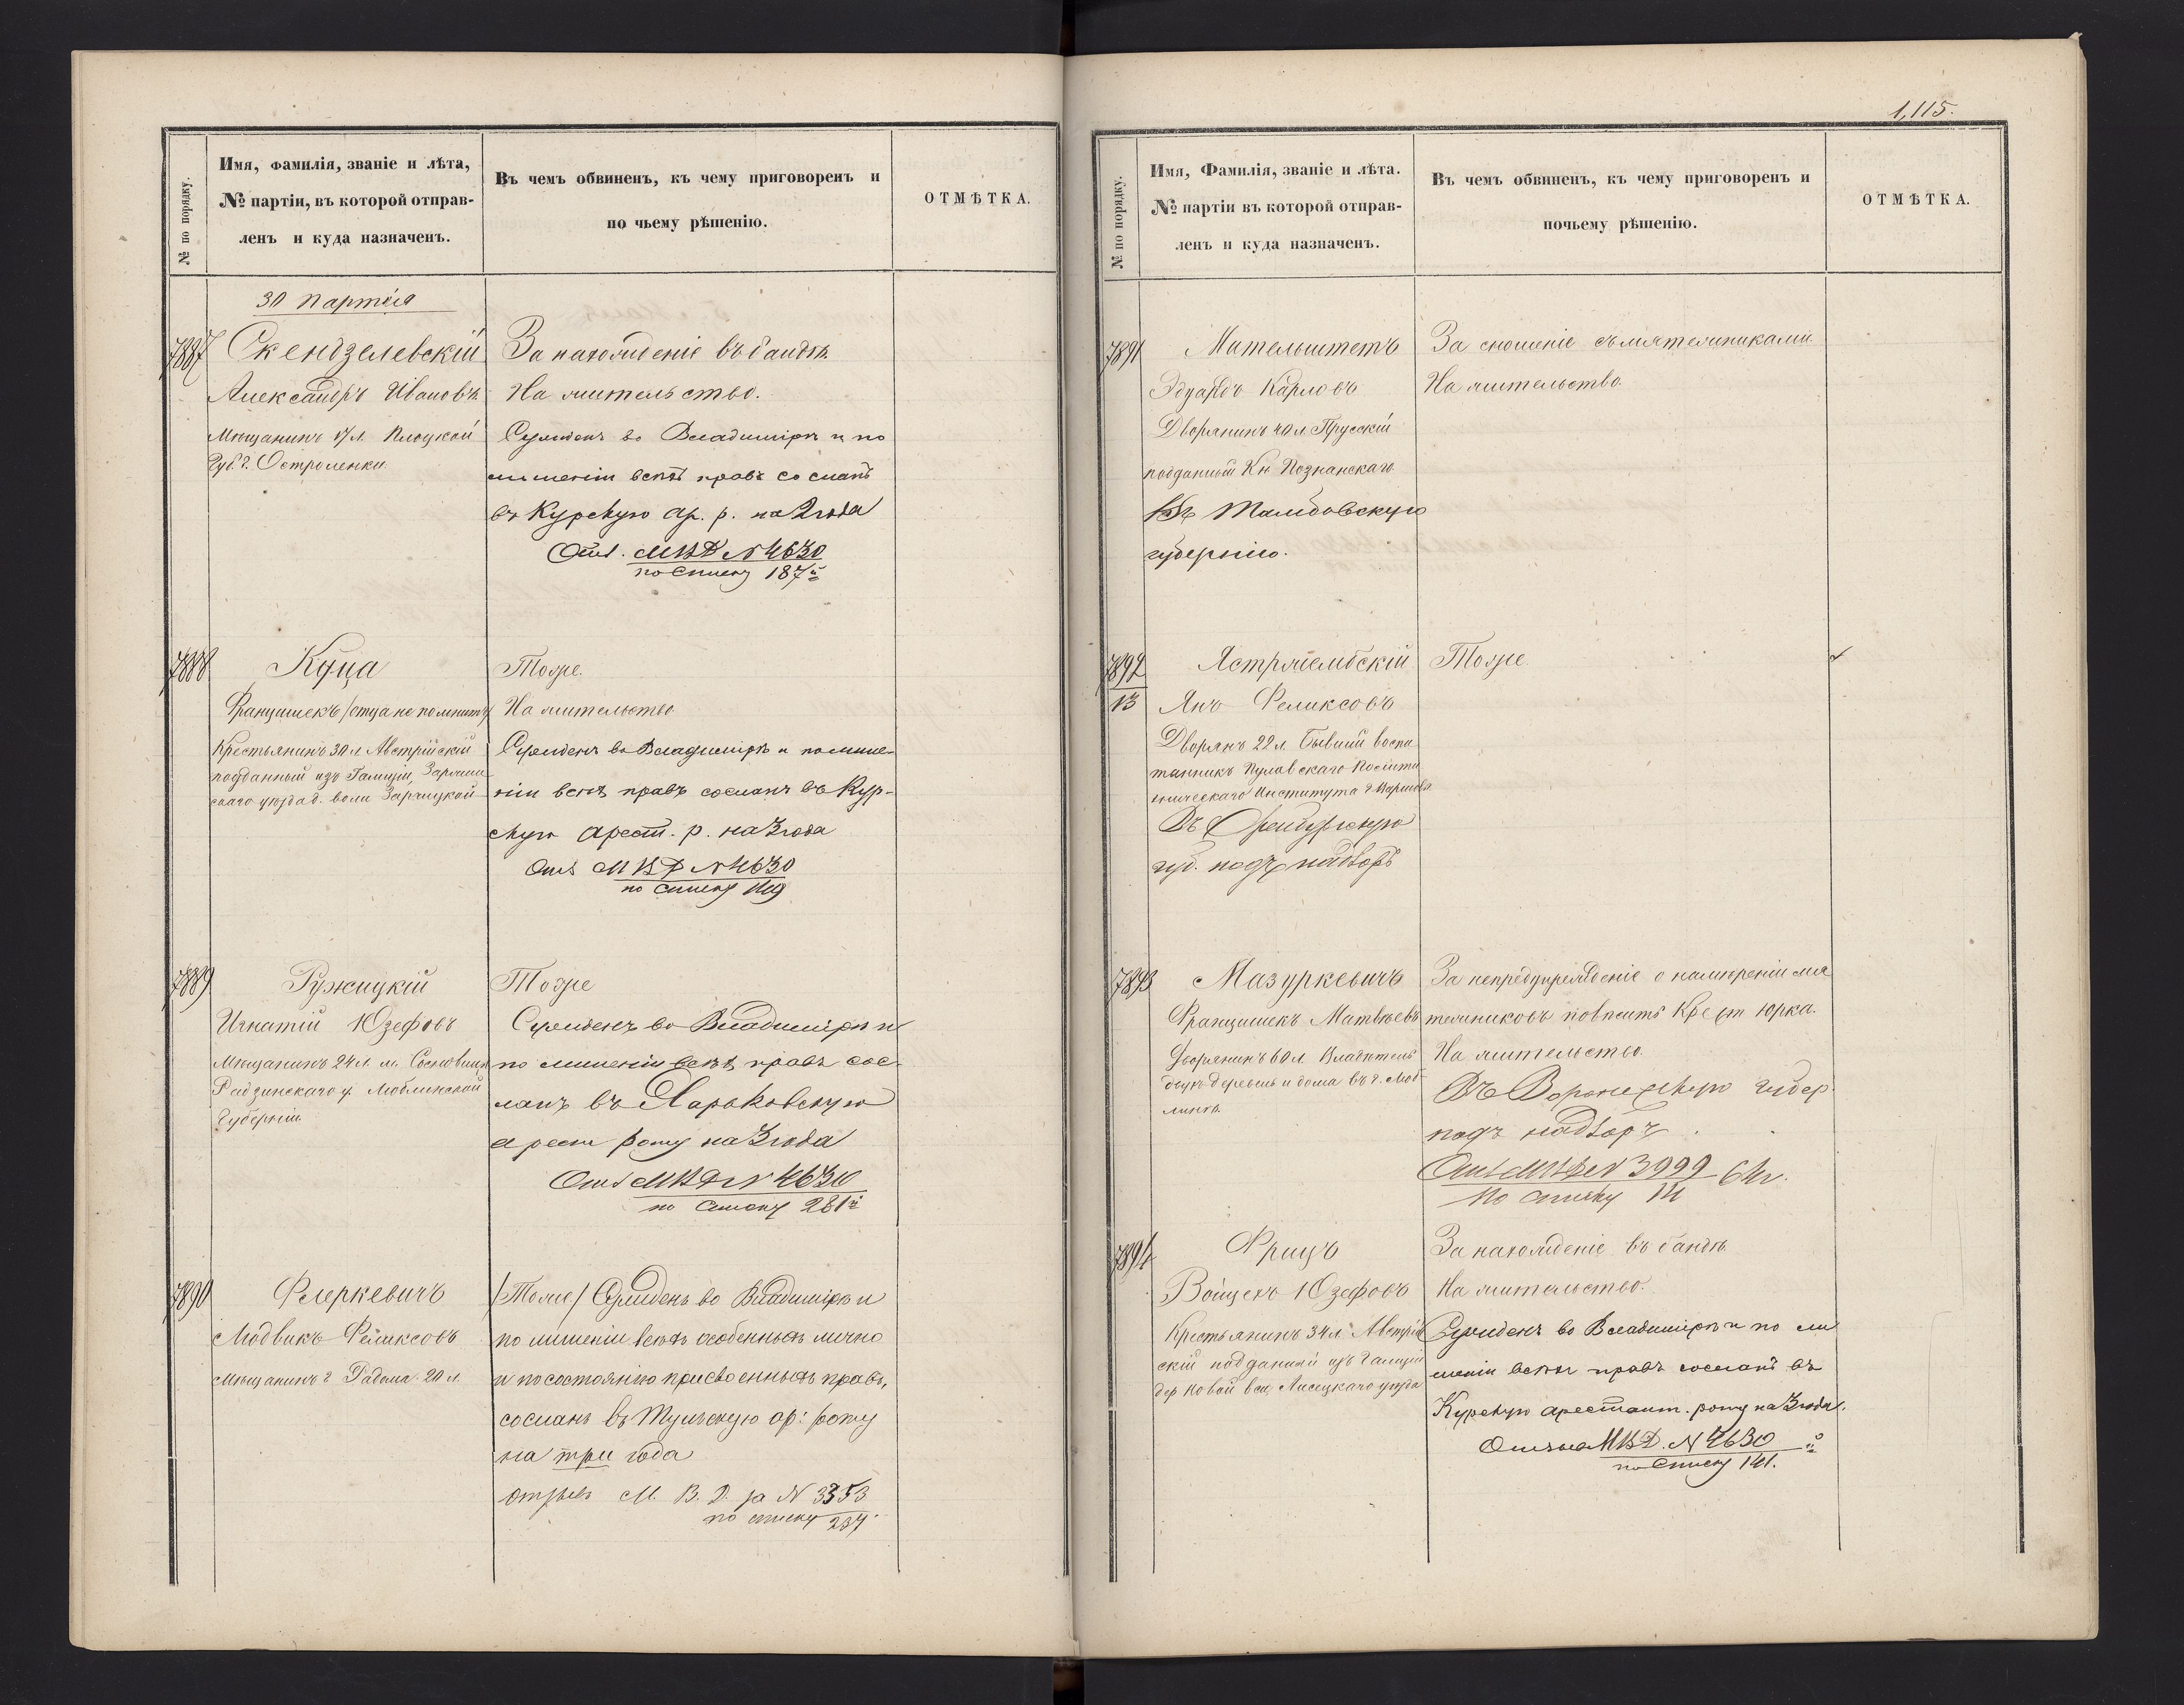 № по порядку.
Имя, фамилія, званіе и лѣта,
№ партіи, въ которой отправ-
ленъ и куда назначенъ.
Въ чемъ обвиненъ, къ чему приговоренъ и
по чьему рѣшенію.
ОТМѢТКА.
30 партія
7887
Скендзелевскій
Александръ Ивановъ
Мѣщанинъ 17 л. Плоцкой
Губ. г. Остроленки
За нахожденіе въ бандѣ.
На жительство.
Сужденъ во Владимірѣ и по
лишеніи всѣхъ правъ сосланъ
въ Курскую ар. р. на 2 года
Отз. МВД N 4630
по списку 187й
7888
Куца
Францишекъ /отца не помнитъ/
Крестьянинъ 30 л. Австрійскій
подданный изъ Галиціи,
скаго уѣзда д. воли Заржицкой
Тоже.
На жительство
Сужденъ во Владимірѣ и по лише-
ніи всѣхъ правъ сосланъ въ Кур-
скую арест. р. на 3 года
Отз МВД N 4630
по списку 149
7889
Ружицкій
Игнатій Юзефовъ
Мѣщанинъ 24 л. м.
Радзинскаго у. Люблинской
Губерніи
Тоже
Сужденъ во Владимірѣ и
по лишеніи всѣхъ правъ сос-
ланъ въ Харьковскую
арест роту на 3 года
Отз МВД N 4630
по списку 281й
7890
Флеркевичъ
Людвикъ Феликсовъ
Мѣщанинъ г Радома 20 л.
/Тоже/ Сужденъ во Владимірѣ и
по лишеніи всѣхъ особенныхъ лично
и по состоянію присвоенныхъ правъ,
сосланъ въ Тульскую ар: роту
на три года
отзывъ М. В. Д. за N 3353
по списку 234.
1,115.
№ по порядку.
Имя, Фамилія, званіе и лѣта.
№ партіи въ которой отправ-
ленъ и куда назначенъ.
Въ чемъ обвиненъ, къ чему приговоренъ и
почьему рѣшенію.
ОТМѢТКА.
7891
Мительштетъ
Эдуардъ Карловъ
Дворянинъ 40 л. Прусскій
подданный Кн Познанскаго
Въ Тамбовскую
губернію.
За сношеніе съ мятежниками
На жительство.
7892
13
Ястржембскій
Янъ Феликсовъ
Дворянъ 22 л. Бывшій воспи
танникъ Пулавскаго Политех
ническаго Института г Варшава
Въ Оренбургскую
губ. подъ надзоръ
Тоже.
7893
Мазуркевичъ
Францишекъ Матвѣевъ
Дворянинъ 60 л. Владѣтель
двухъ деревень и дома въ г. Люб
линѣ.
За непредупрежденіе о намѣреніи мя
тежниковъ повѣсить Крест Юрка.
На жительство.
Въ Воронежскую губер.
подъ надзоръ.
Отз МВД N 3999
по списку
7894
Фрицъ
Войцехъ Юзефовъ
Крестьянинъ 34 л. Австрій
скій подданный изъ Галиціи
дер Новой вси, Лисецкаго уѣзда
За нахожденіе въ бандѣ
На жительство.
Сужденъ во Владимірѣ и по ли
шеніи всѣхъ правъ сосланъ въ
Курскую арестант. роту на 3 года.
Отзывъ МВД. N 4630
по списку 141.